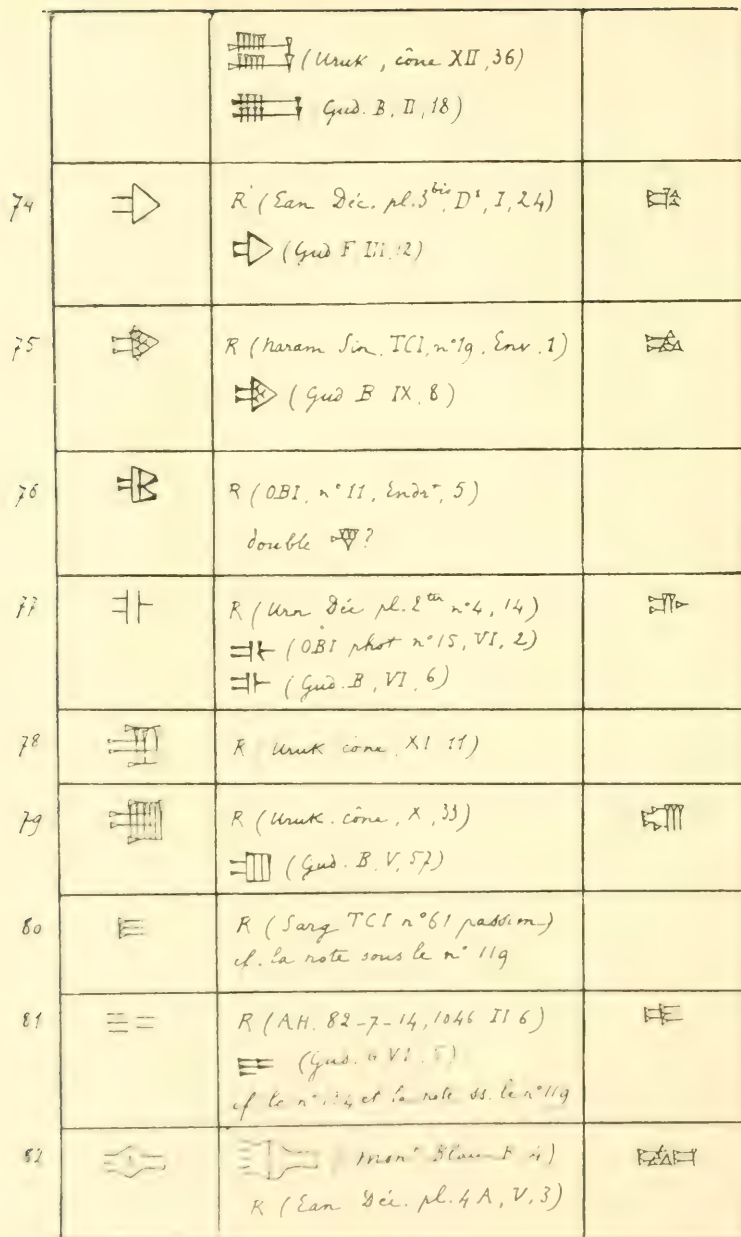 (Uruk, cône XII, 36)
Gud. B, II, 18)
74 R (Ean Déc. pl. 3 bis, I, 24)
(Gud F III 2)
75 R (Naram Sin. TCI, n° 19, Env. 1)
(Gud B IX, 8)
76 R (OBI, n° 11, 5)
double ?
77 R (Urn Déc pl. 2 ter n° 4, 14)
(OBI phot n° 15, VI, 2)
(Gud. B, VI, 6)
78 R Uruk cone, XI 11)
79 R (Uruk. cône, X, 33)
(Gud. B, V, 57)
80 R (Sarg TCI n° 61 passim)
cf. la note sous le n° 119
81 R (AH. 82-7-14, 1046 II 6)
(Gud. VI
cf le n° et la note ss. le n° 119
82 mont Blau 4)
R (Ean Déc. pl. 4 A, V, 3)